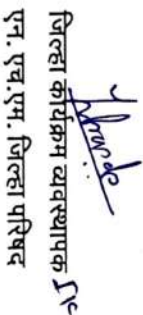 जिल्हा कार्यक्रम व्यवस्थापक
एन. एच.एम. जिल्हा परिषद